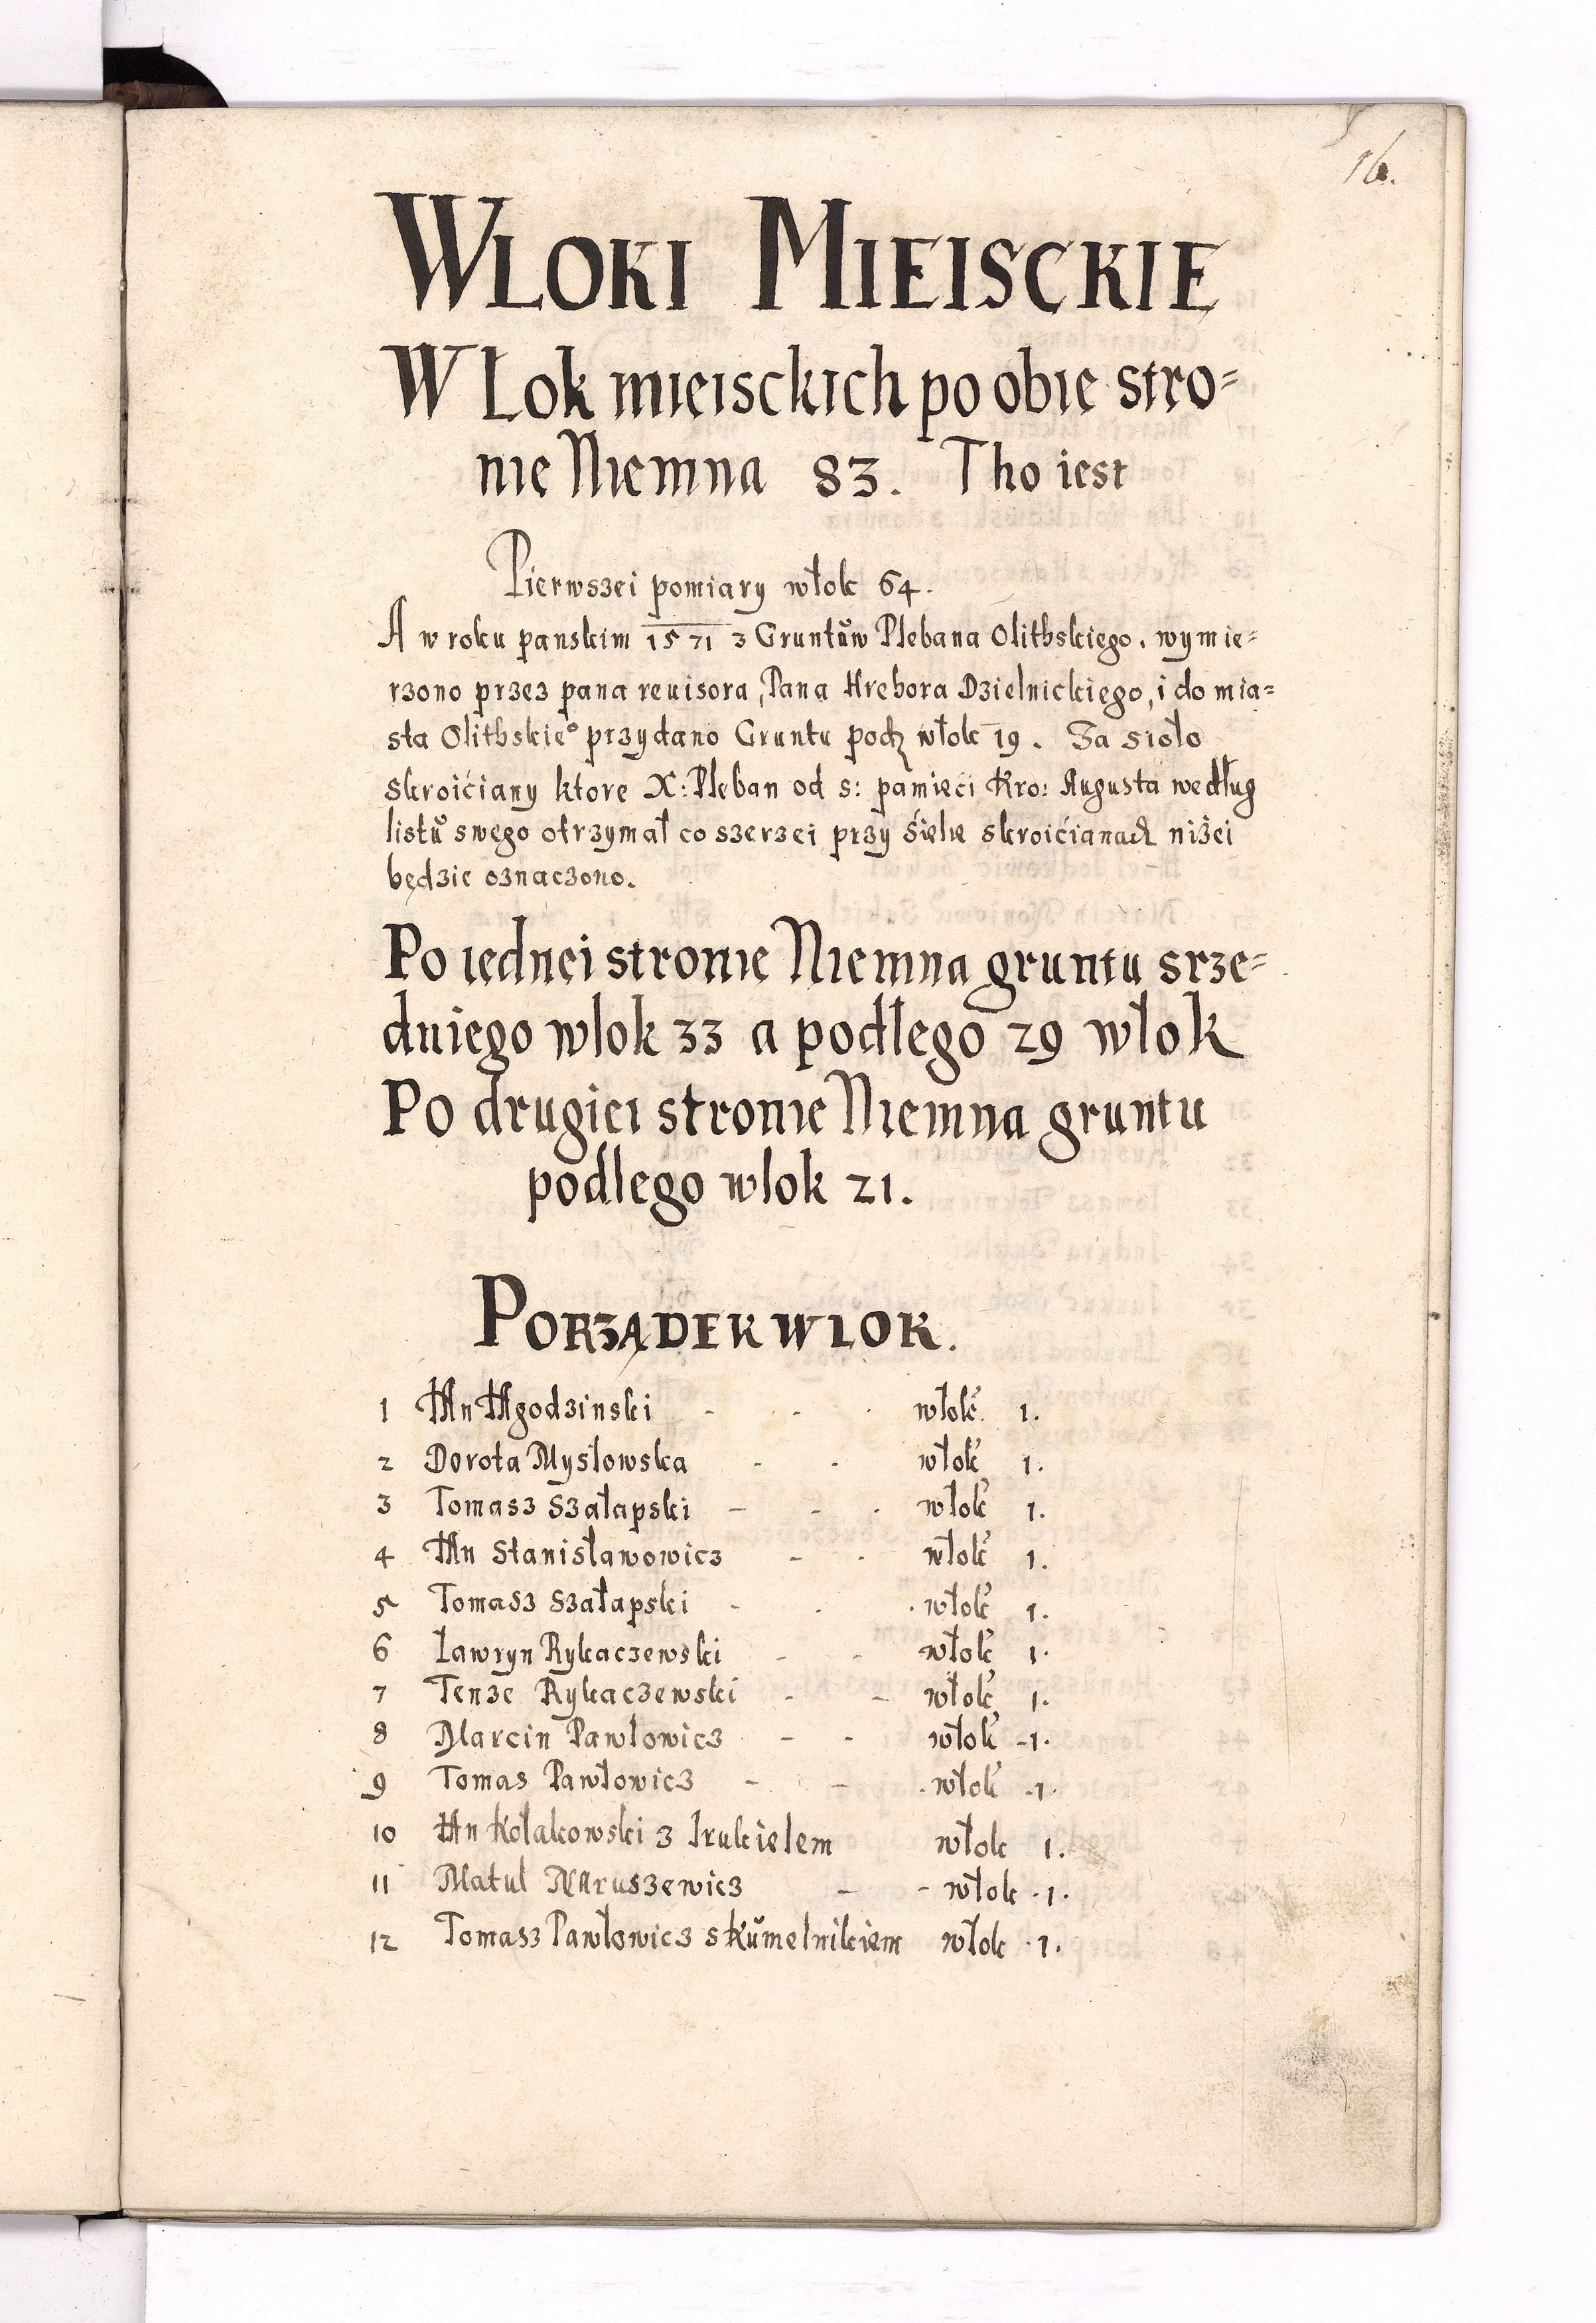 16.
WLOKI MIEISCKIE
WLok mieisckich po obie stro=
nie Niemna 83. Tho iest
Pierwszei pomiary włok 64.
A w roku panskim 1571 z Gruntŭw Plebana Olithskiego. wymie=
rzono przez pana reuisora, Pana Hrehora Dzielnickiego, i do mia=
sta Olithskie° przydano Gruntu włok 19. Za sioło
skroićiany ktore X: Pleban od s: pamięci Kro: Augusta według
listŭ swego otrzymał co szerzei przy śiele skroićianach niżei
będzie oznaczono.
Po iednei stronie Niemna gruntu srze=
dniego wlok 33 a podłego 29 włok
Po drugiei stronie Niemna gruntu
podlego wlok 21.
PORZĄDEK WLOK.
1 IAn IAgodzinski - - . włok 1.
2 Dorota Mysłowska - - włok 1.
3 Tomasz Szałapski - - . włok 1.
4 IAn Stanisławowicz - . włok 1.
5 Tomasz Szałapski - . . włok 1.
6 Ławryn Rykaczewski - - włok 1.
7 Tenze Rykaczewski - - włok 1.
8 Marcin Pawłowicz - - włok -1.
9 Tomas Pawłowicz - - . włok -1.
10 IAn Kołakowski z Irukielem włok 1.
11 Matul NAruszewicz - - włok . 1.
12 Tomasz Pawłowicz s Kŭmelnikiem włok . 1.